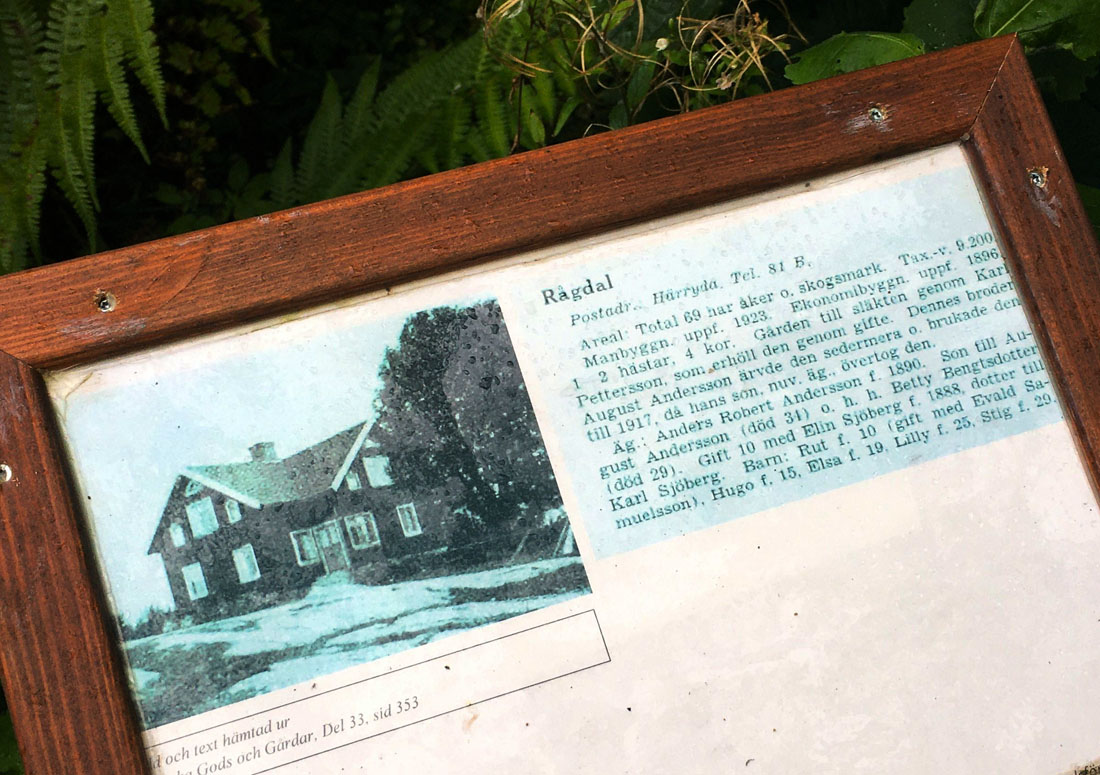 Rågdal
Postadr.: Härryda. Tel. 81 B.
Areal: Total 69 har åker o. skogsmark. Tax.-v. 9.200.
Manbyggn. uppf. 1923. Ekonomibyggn. uppf. 1896.
1 2 hästar, 4 kor. Gården till släkten genom Karl
Pettersson, som erhöll den genom gifte. Dennes broder
August Andersson ärvde den sedermera o. brukade den
till 1917, då hans son, nuv. äg. övertog den.
Äg.: Anders Robert Andersson f. 1890. Son till Au-
gust Andersson (död 34) o. h. h. Betty Bengtsdotter
(död 29). Gift 10 med Elin Sjöberg f. 1888, dotter till
Karl Sjöberg. Barn: Rut f. 10 (gift med Evald Sa-
muelsson), Hugo f. 15, Elsa f. 19, Lilly f. 25, Stig f. 29.
ld och text hämtad ur
Gods och Gårdar, Del 33, sid 353